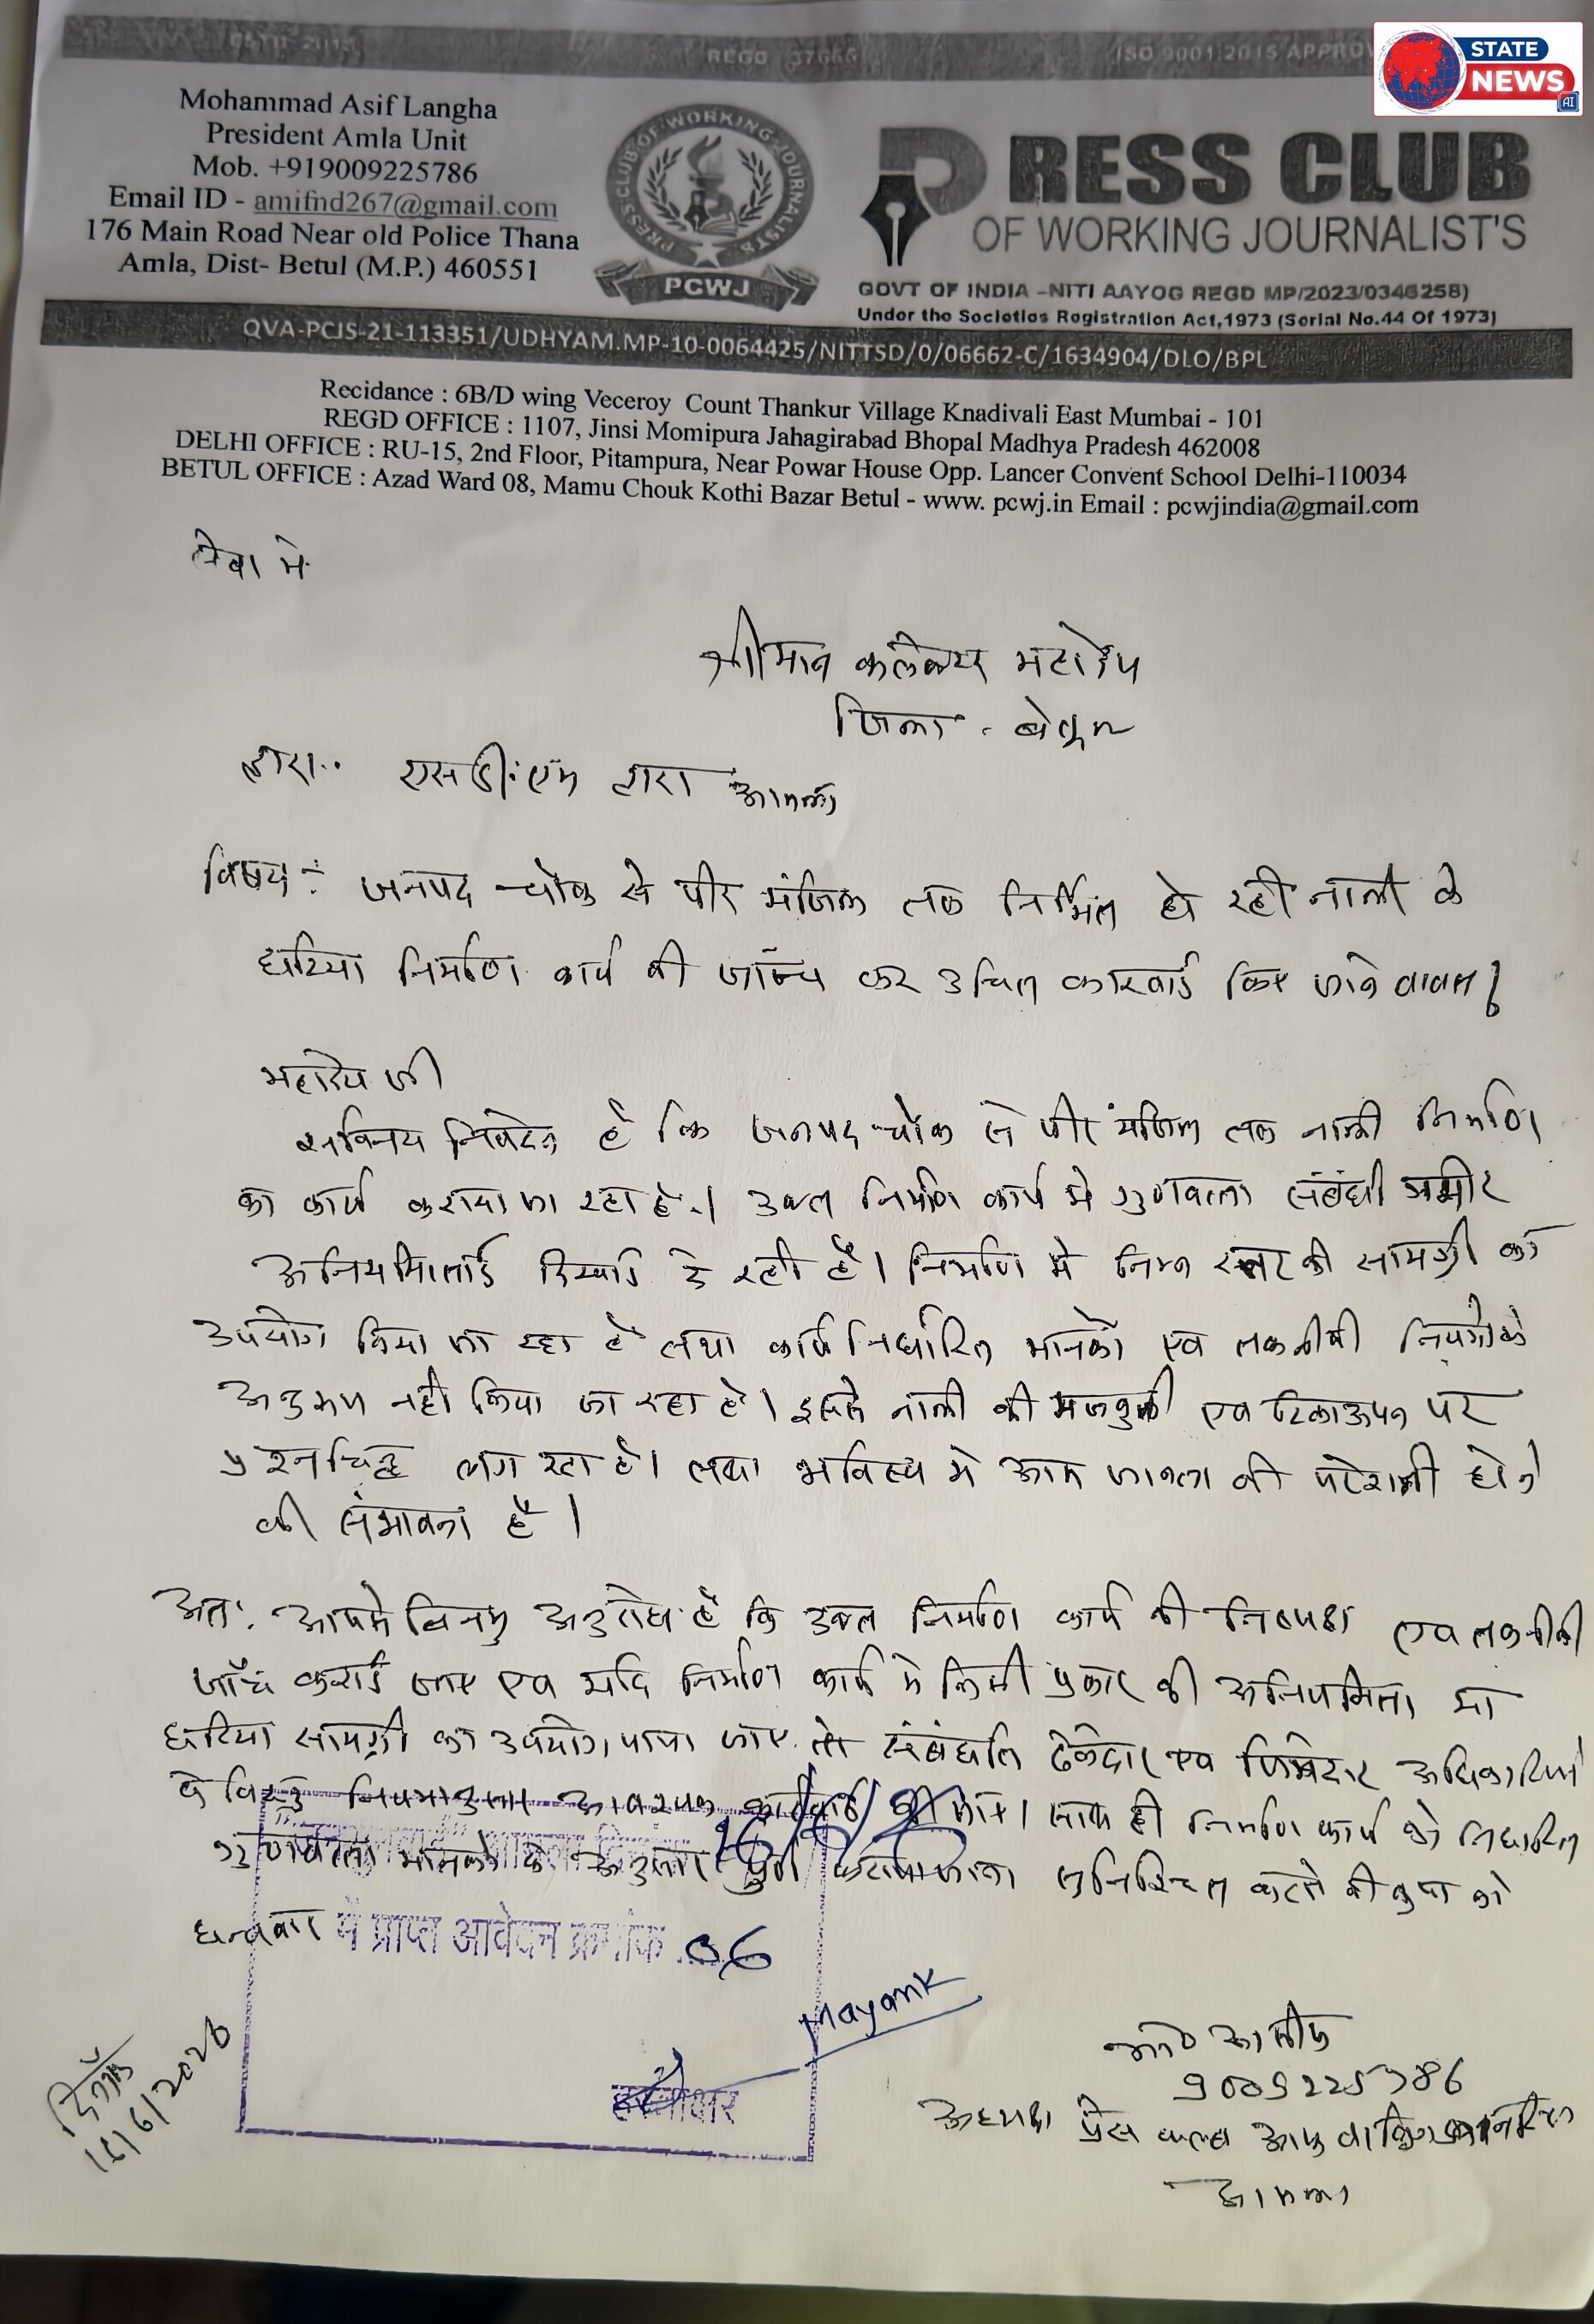 ESTD 2015 REGD 37665 ISO 9001:2015 APPROV
STATE
NEWS
AI
Mohammad Asif Langha
President Amla Unit
Mob. +919009225786
Email ID - amifnd267@gmail.com
176 Main Road Near old Police Thana
Amla, Dist- Betul (M.P.) 460551
PRESS CLUB OF WORKING JOURNALISTS
PCWJ
PRESS CLUB
OF WORKING JOURNALIST'S
GOVT OF INDIA -NITI AAYOG REGD MP/2023/0346258)
Under the Societies Registration Act,1973 (Serial No.44 Of 1973)
QVA-PCJS-21-113351/UDHYAM.MP-10-0064425/NITTSD/0/06662-C/1634904/DLO/BPL
Recidance : 6B/D wing Veceroy Count Thankur Village Knadivali East Mumbai - 101
REGD OFFICE : 1107, Jinsi Momipura Jahagirabad Bhopal Madhya Pradesh 462008
DELHI OFFICE : RU-15, 2nd Floor, Pitampura, Near Powar House Opp. Lancer Convent School Delhi-110034
BETUL OFFICE : Azad Ward 08, Mamu Chouk Kothi Bazar Betul - www. pcwj.in Email : pcwjindia@gmail.com
सेवा मे
श्रीमान कलेक्टर महोदय
जिला - बेतूल
द्वारा.. एस.डी.एम द्वारा आमला
विषय :- जनपद चोक से पीर मंजिल तक निर्मित हो रही नाली के
घटिया निर्माण कार्य की जॉच कर उचित कारवाई किए जाने वावत।
महोदय जी
सविनय निवेदन है कि जनपद चोक से पीर मंजिल तक नाली निर्माण
का कार्य कराया जा रहा है। उक्त निर्माण कार्य मे गुणवत्ता संबंधी गंभीर
अनियमिताई दिखाई दे रही है। निर्माण मे निम्न स्तर की सामग्री का
उपयोग किया जा रहा है तथा कार्य निर्धारित मानको एव तकनीकी नियमो के
अनुरूप नही किया जा रहा है। इससे नाली की मजबुती एव टिकाऊपन पर
प्रश्नचिन्ह लग रहा है। तथा भविष्य मे आम जनता की परेशानी होने
की संभावना है।
अतः आपसे विनम्र अनुरोध है कि उक्त निर्माण कार्य की निष्पक्ष एव तकनीकी
जॉच कराई जाए एव यदि निर्माण कार्य मे किसी प्रकार की अनियमिता या
घटिया सामग्री का उपयोग पाया जाए तो संबंधति ठेकेदार एव जिम्मेदार अधिकारियो
के विरुद्ध नियमानुसार आवश्यक कार्यवाई की जाए। साथ ही निर्माण कार्य को निर्धारित
गुणवत्ता मानको के अनुसार पुर्ण कराया जाना सुनिश्चित करने की कृपा करे
धन्यवाद
16/6/26
में प्राप्त आवेदन क्रमांक 06
Mayank
हस्ताक्षर
दिनाँक
16/6/2026
मो० आसीफ
9009225786
अध्यक्ष प्रेस क्लब आफ वर्किंग जर्नलिस्ट
आमला